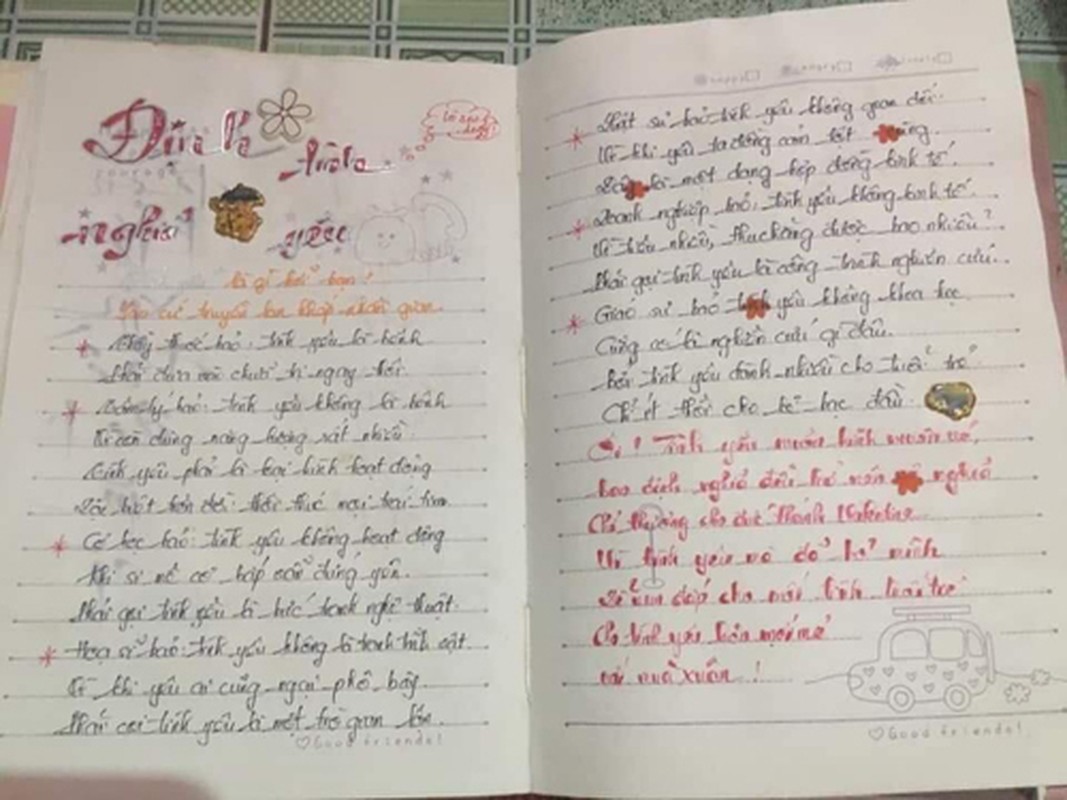 Định
nghĩa
yêu
là gì hởi bạn!
truyền lan khắp nhân gian.
Thầy thuốc bảo: tình yêu là bệnh
Phải đưa vào chữa trị ngay thôi
bảo: tình yêu không là bệnh
Vì cần dùng năng lượng rất nhiều
Tình yêu phải là loại hình hoạt động
hơn đời: thổn thức mọi trái tim
Cơ học bảo: tình yêu không hoạt động
Khi sự nổ cơ cần đúng
Phải gọi tình yêu là bức tranh nghệ thuật.
Hoạ sĩ bảo: tình yêu không là tranh tĩnh vật
Vì khi yêu ai cũng ngại phô bày
Phải coi tình yêu là một trò gian lận
♡Good friends!
happy
angry
lonely
Luật sư bảo tình yêu không gian dối
Vì khi yêu ta dùng cảm
Đây là một dạng hợp đồng kinh tế.
Doanh nghiệp bảo: tình yêu không kinh tế
Vì tiêu nhiều, thu chẳng được bao nhiêu?
Phải gọi tình yêu là công trình nghiên cứu.
Giáo sư bảo tình yêu không khoa học
Cũng có là nghiên cứu gì đâu.
Bởi tình yêu dành nhiều cho tuổi trẻ
Chỉ ít thôi cho kẻ bạc đầu
Ôi! Tình yêu muôn hình muôn vẻ,
bao định nghĩa đều trở nên vô nghĩa
Chỉ thương cho đức Thánh Valentine
Vì tình yêu mà đổ hi sinh
Để đẹp cho mối tình tuổi trẻ
Cho tình yêu luôn mới mẻ
với mùa xuân!
♡Good friends!